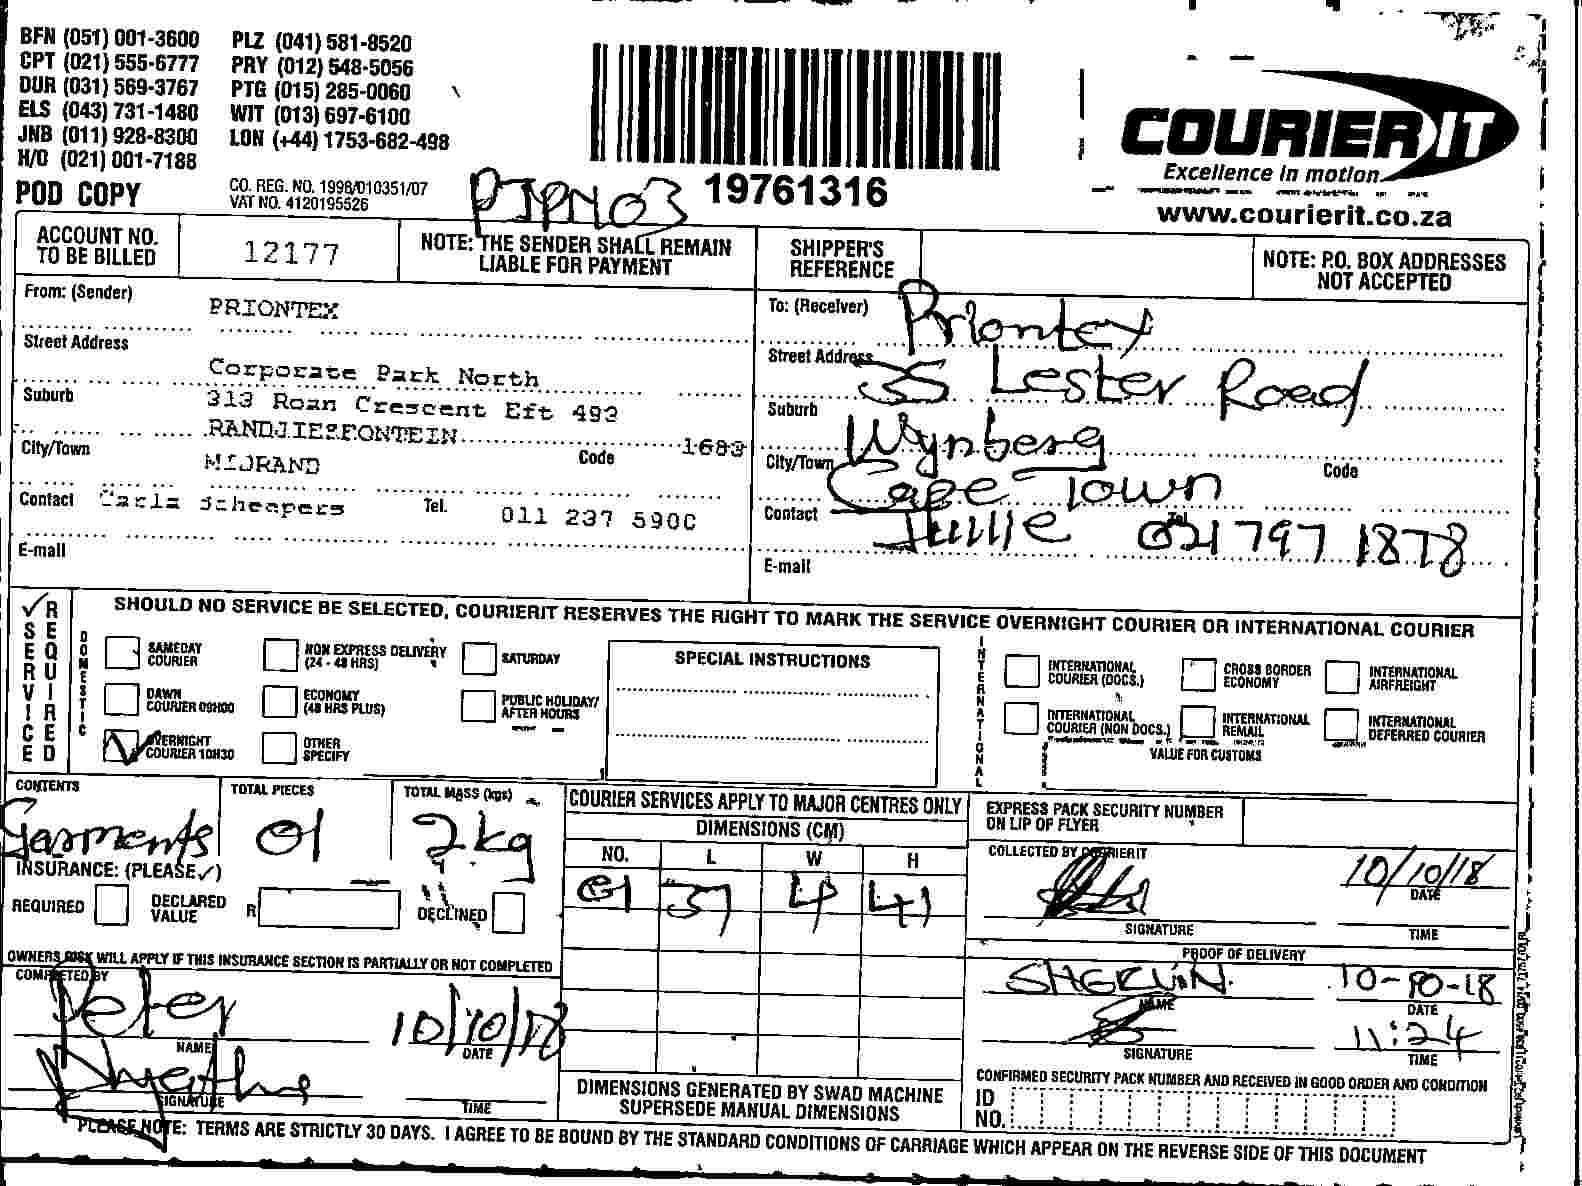 BFN (051) 001-3600 PLZ (041) 581-8520
CPT (021) 555-6777 PRY (012) 548-5056
DUR (031) 569-3767 PTG (015) 285-0060
ELS (043) 731-1480 WIT (013) 697-6100
JNB (011) 928-8300 LON (+44) 1753-682-498
H/O (021) 001-7188
POD COPY
CO. REG. NO. 1998/010351/07
VAT NO. 4120195526
PTPN03
19761316
COURIERIT
Excellence in motion
www.courierit.co.za
ACCOUNT NO. TO BE BILLED 12177
NOTE: THE SENDER SHALL REMAIN LIABLE FOR PAYMENT
SHIPPER'S REFERENCE
NOTE: P.O. BOX ADDRESSES NOT ACCEPTED
From: (Sender) PRIONTEX
Street Address
Corporate Park North
Suburb 313 Roan Crescent Eft 493
RANDJIESFONTEIN
City/Town MIDRAND Code 1683
Contact Carla Scheepers Tel. 011 237 5900
E-mail
To: (Receiver) Priontex
Street Address 35 Lester Road
Suburb Wynberg
City/Town Cape Town Code
Contact Jullie Tel 021 797 1878
E-mail
SERVICE REQUIRED
SHOULD NO SERVICE BE SELECTED, COURIERIT RESERVES THE RIGHT TO MARK THE SERVICE OVERNIGHT COURIER OR INTERNATIONAL COURIER
DOMESTIC
SAMEDAY COURIER
NON EXPRESS DELIVERY (24 - 48 HRS)
SATURDAY
DAWN COURIER 09H00
ECONOMY (48 HRS PLUS)
PUBLIC HOLIDAY/ AFTER HOURS
OVERNIGHT COURIER 10H30
OTHER SPECIFY
SPECIAL INSTRUCTIONS
INTERNATIONAL
INTERNATIONAL COURIER (DOCS.)
CROSS BORDER ECONOMY
INTERNATIONAL AIRFREIGHT
INTERNATIONAL COURIER (NON DOCS.)
INTERNATIONAL REMAIL
INTERNATIONAL DEFERRED COURIER
VALUE FOR CUSTOMS
CONTENTS Garments
TOTAL PIECES 01
TOTAL MASS (kgs) 2kg
INSURANCE: (PLEASE ✓)
REQUIRED DECLARED VALUE R DECLINED
OWNERS RISK WILL APPLY IF THIS INSURANCE SECTION IS PARTIALLY OR NOT COMPLETED
COMPLETED BY
Peter 10/10/18
NAME DATE
SIGNATURE TIME
COURIER SERVICES APPLY TO MAJOR CENTRES ONLY
DIMENSIONS (CM)
NO. L W H
01 37 4 41
DIMENSIONS GENERATED BY SWAD MACHINE SUPERSEDE MANUAL DIMENSIONS
EXPRESS PACK SECURITY NUMBER ON LIP OF FLYER
COLLECTED BY COURIERIT
10/10/18
DATE
SIGNATURE TIME
PROOF OF DELIVERY
SHERVIN 10-10-18
NAME DATE
11:24
SIGNATURE TIME
CONFIRMED SECURITY PACK NUMBER AND RECEIVED IN GOOD ORDER AND CONDITION
ID NO.
PLEASE NOTE: TERMS ARE STRICTLY 30 DAYS. I AGREE TO BE BOUND BY THE STANDARD CONDITIONS OF CARRIAGE WHICH APPEAR ON THE REVERSE SIDE OF THIS DOCUMENT